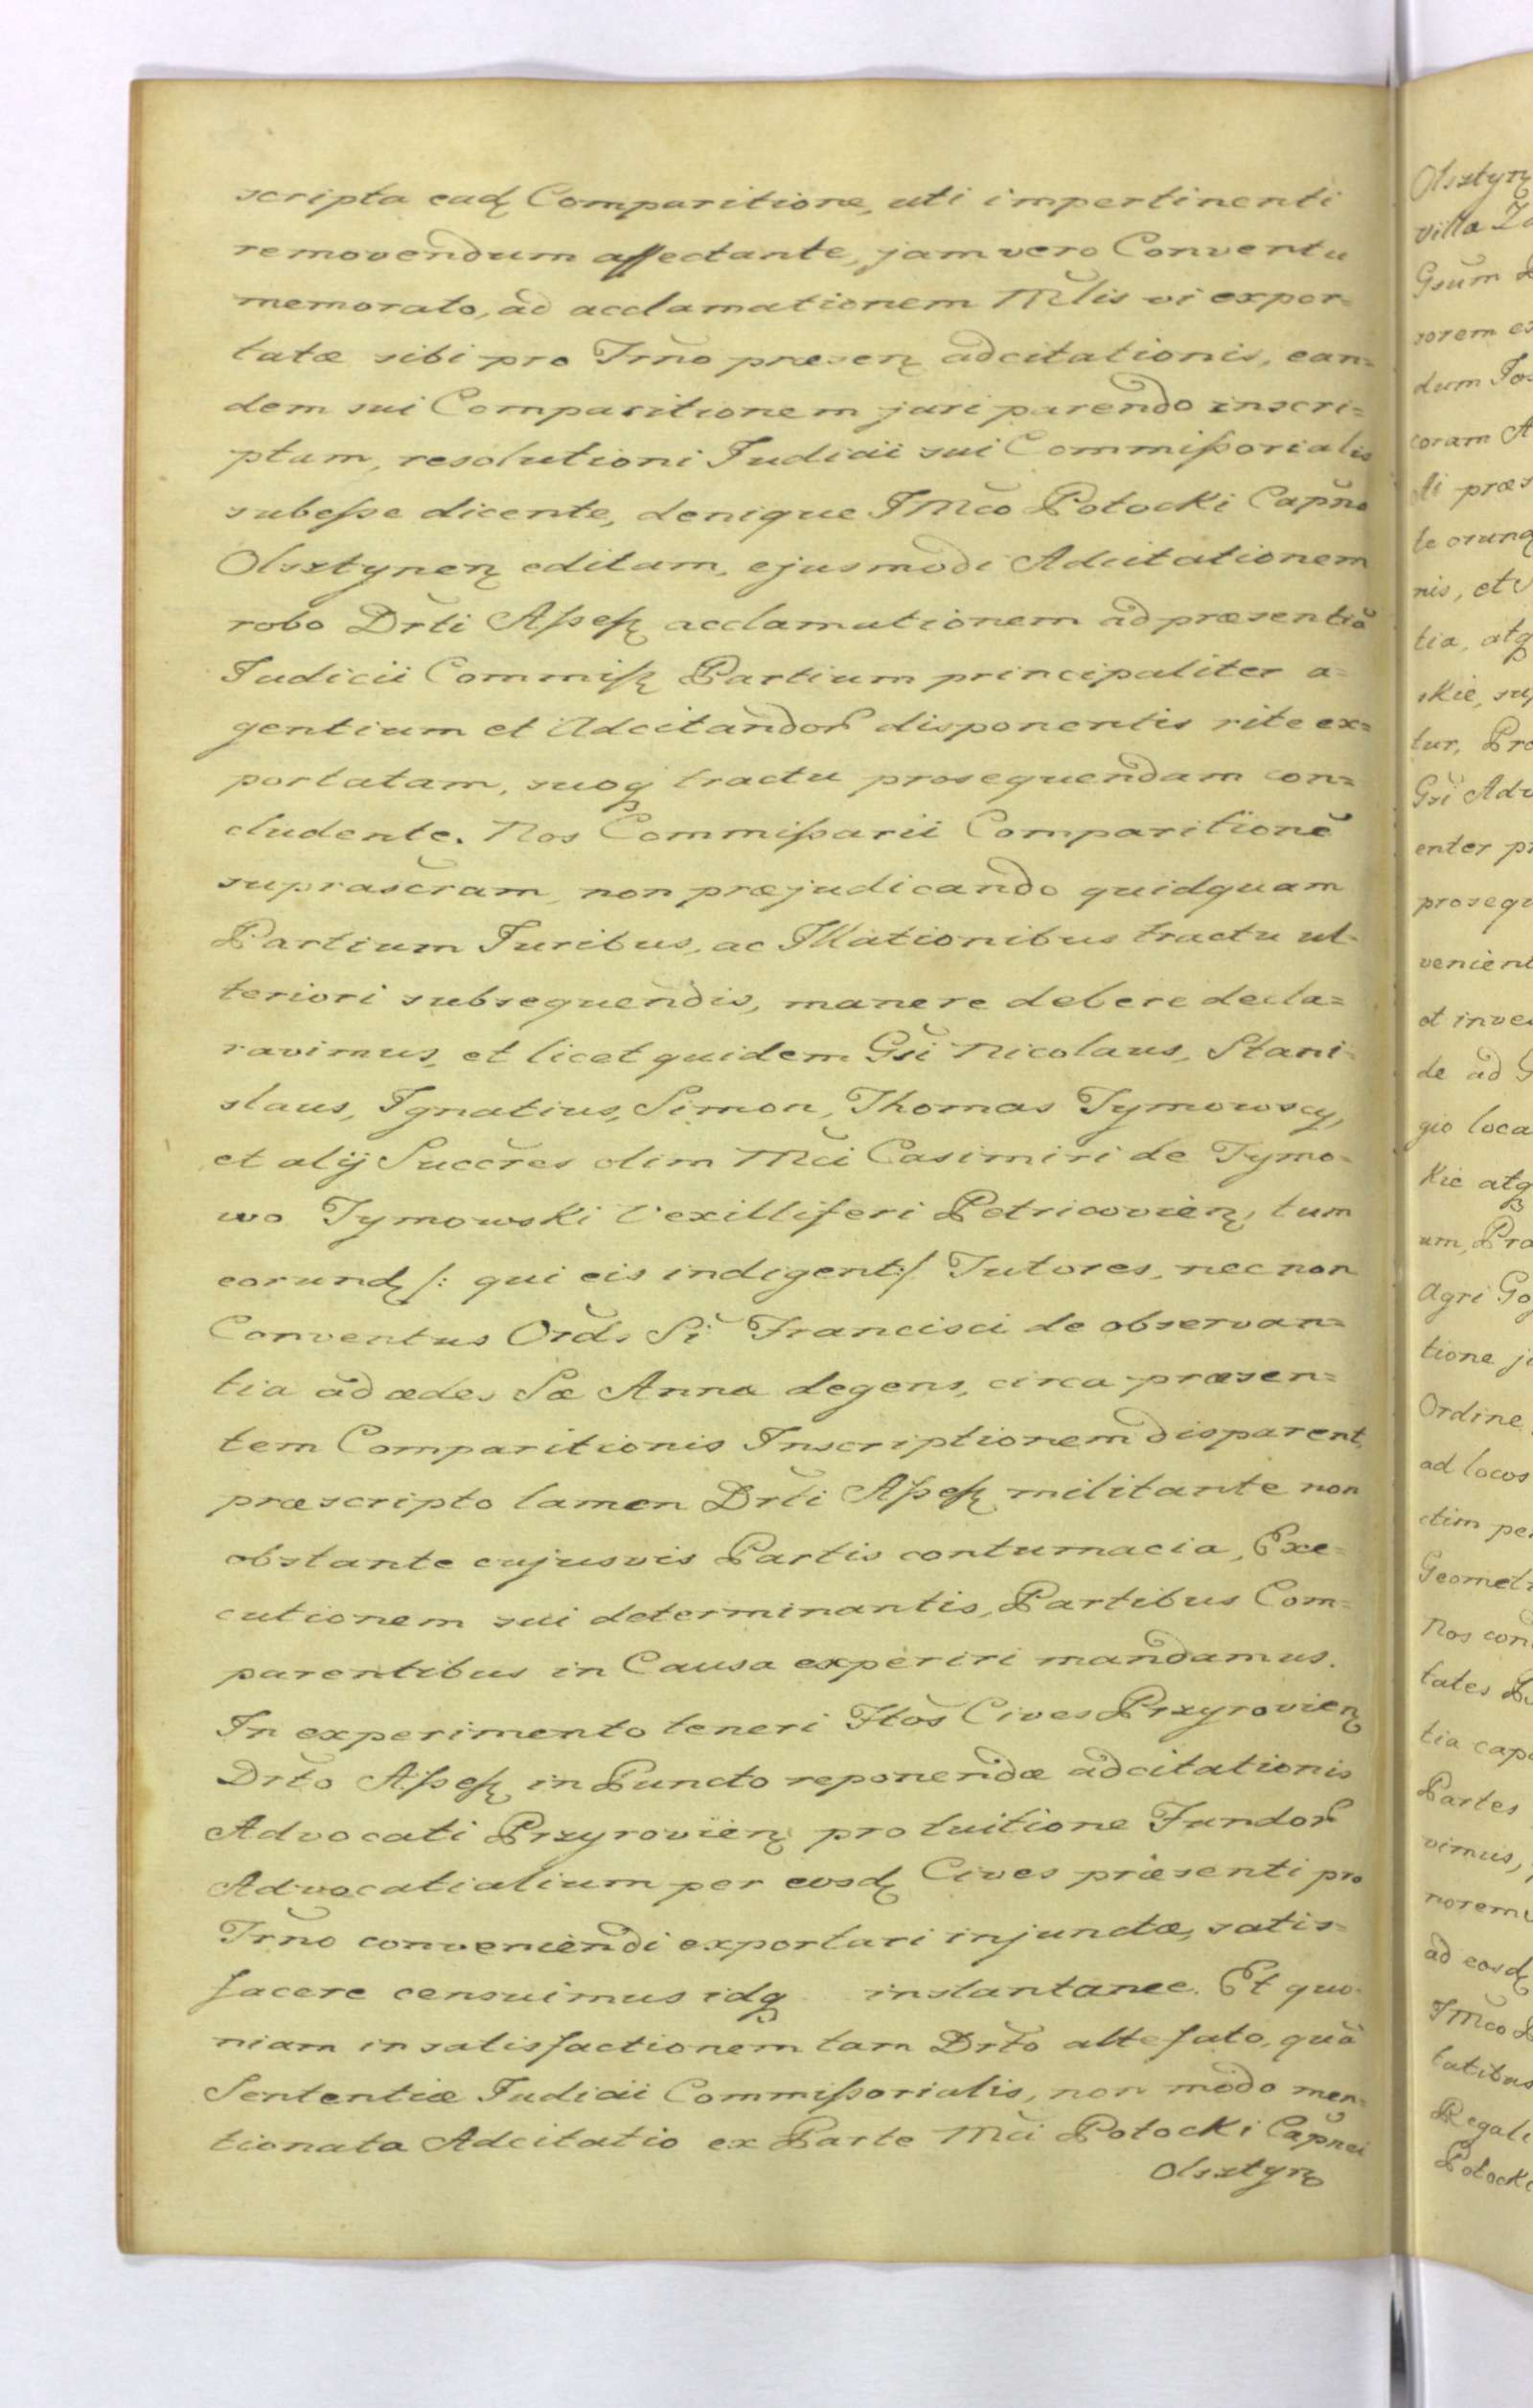 scripta eadꝫ Comparitione, uti impertinenti
removendum affectante, jam vero Conventu
memorato, ad acclamationem Mtlis vi expor=
tatæ sibi pro Trno præsenꝫ adcitationis, ean=
dem sui Comparitionem juri parendo inscri=
ptam, resolutioni Judicii sui Commissorialis
subesse dicente, denique JMco Potocki Capno
Olsztynenꝫ editam, ejusmodi Adcitationem
robo Drti Assessꝫ acclamationem ad præsentiã
Judicii Commissꝫ Partium principaliter a=
gentium et Adcitandor disponentis rite ex=
portatam, suoqꝫ tractu prosequendam con=
cludente. Nos Commissarii Comparitionẽ
suprascram, non præjudicando quidquam
Partium Juribus, ac Illationibus tractu ul=
teriori subsequendis, manere debere decla=
ravimus, et licet quidem Gsi Nicolaus, Stani=
slaus, Ignatius, Simon, Thomas Tymowscy,
et alij Succres olim Mci Casimiri de Tymo=
wo Tymowski Vexilliferi Petricovienꝫ, tum
eorundꝫ /: qui eis indigent:/ Tutores, nec non
Conventus Ord. Si Francisci de observan=
tia ad ædes Sæ Anna degens, circa præsen=
tem Comparitionis Inscriptionem disparent,
præscripto tamen Drti Assessꝫ militante non
obstante cujusvis Partis contumacia, Exe=
cutionem sui determinantis, Partibus Com=
parentibus in Causa experiri mandamus.
In experimento teneri Ftos Cives Przyrovienꝫ
Drto Assessꝫ in Puncto reponendæ adcitationis
Advocati Przyrovienꝫ pro tuitione Fundor
Advocatialium per eosdꝫ Cives præsenti pro
Trno conveniendi exportari injunctæ, satis=
facere censuimus idqꝫ instantanee. Et quo=
niam in satisfactionem tam Drto altefato, quã
Sententiæ Judicii Commissorialis, non modo men=
tionata Adcitatio ex Parte Mci Potocki Capnei
Olsztynꝫ